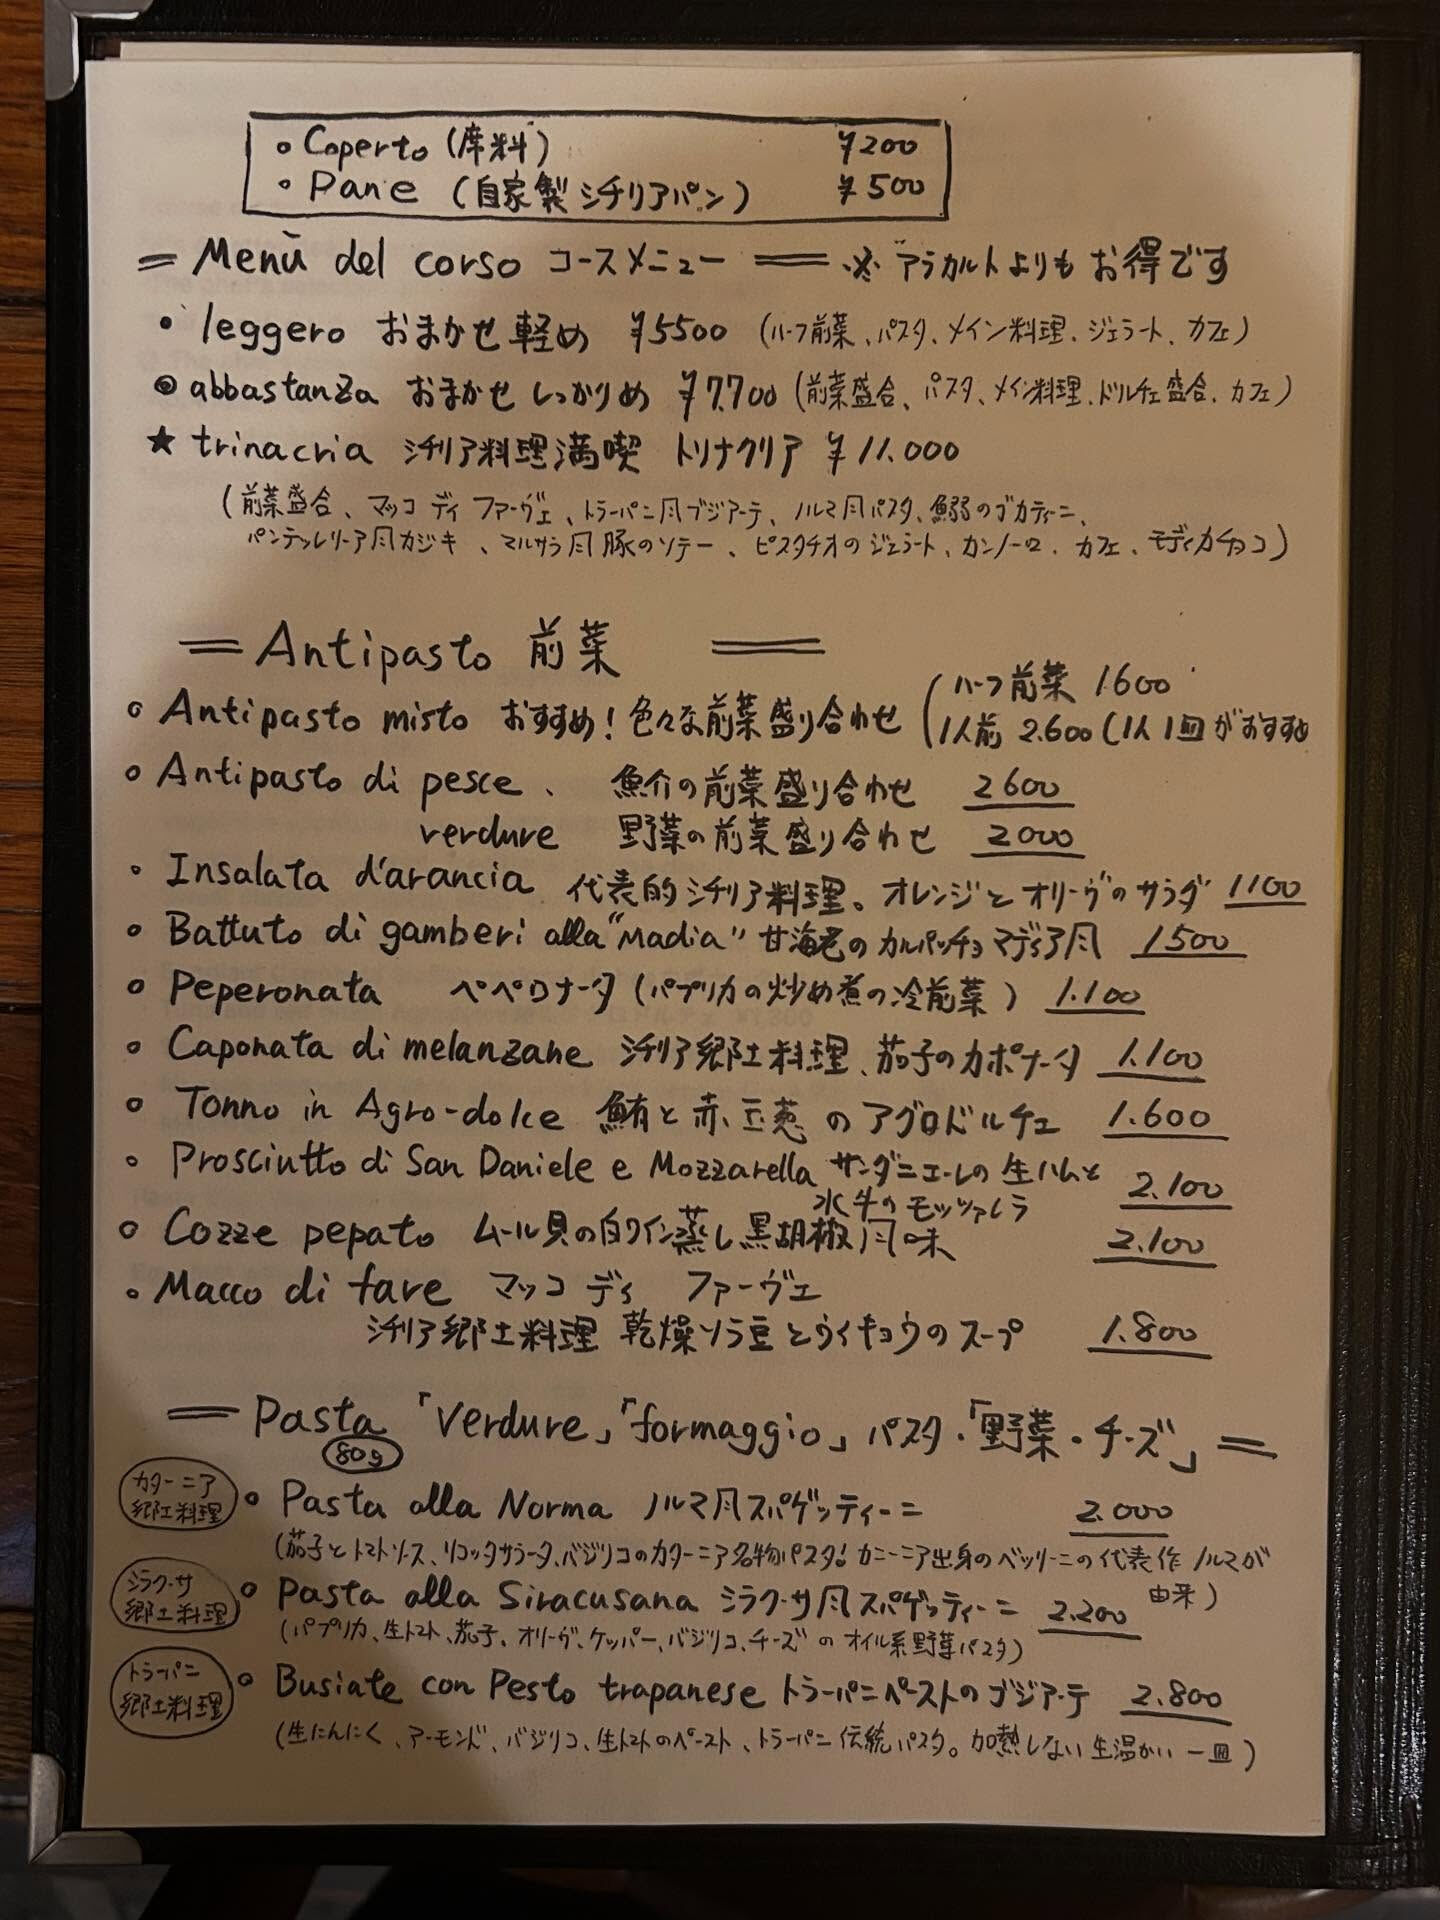 ◦ Coperto (席料) ¥200
・Pane (自家製シチリアパン) ¥500
= Menù del corso コースメニュー = ※アラカルトよりもお得です
・leggero おまかせ軽め ¥5500 (ハーフ前菜、パスタ、メイン料理、ジェラート、カフェ)
◎ abbastanza おまかせしっかりめ ¥7.700 (前菜盛合、パスタ、メイン料理、ドルチェ盛合、カフェ)
★ trinacria シチリア料理満喫 トリナクリア ¥11.000
(前菜盛合、マッコ ディ ファーヴェ、トラーパニ風ブジアーテ、ノルマ風パスタ、鰯のブカティーニ、
パンテッレリーア風カジキ、マルサラ風豚のソテー、ピスタチオのジェラート、カンノーロ、カフェ、モディカチョコ)
= Antipasto 前菜 =
◦ Antipasto misto おすすめ!色々な前菜盛り合わせ (ハーフ前菜 1.600
1人前 2.600 (1人1皿がおすすめ
◦ Antipasto di pesce、 魚介の前菜盛り合わせ 2600
verdure 野菜の前菜盛り合わせ 2000
・Insalata d'arancia 代表的シチリア料理、オレンジとオリーヴのサラダ 1100
・Battuto di gamberi alla "Madia" 甘海老のカルパッチョ マディア風 1500
◦ Peperonata ペペロナータ (パプリカの炒め煮の冷前菜) 1.100
◦ Caponata di melanzane シチリア郷土料理、茄子のカポナータ 1.100
◦ Tonno in Agro-dolce 鮪と赤玉葱のアグロドルチェ 1.600
◦ Prosciutto di San Daniele e Mozzarella サンダニエーレの生ハムと
水牛のモッツァレラ 2.100
◦ Cozze pepato ムール貝の白ワイン蒸し黒胡椒風味 2.100
◦ Macco di fave マッコ ディ ファーヴェ
シチリア郷土料理 乾燥ソラ豆とウイキョウのスープ 1.800
= Pasta「verdure」「formaggio」パスタ・「野菜・チーズ」=
80g
カターニア
郷土料理
◦ Pasta alla Norma ノルマ風スパゲッティーニ 2.000
(茄子とトマトソース、リコッタサラータ、バジリコのカターニア名物パスタ!カターニア出身のベッリーニの代表作 ノルマが
由来)
シラクーサ
郷土料理
◦ Pasta alla Siracusana シラクーサ風スパゲッティーニ 2.200
(パプリカ、生トマト、茄子、オリーヴ、ケッパー、バジリコ、チーズのオイル系野菜パスタ)
トラーパニ
郷土料理
◦ Busiate con Pesto trapanese トラーパニペーストのブジアーテ 2.800
(生にんにく、アーモンド、バジリコ、生トマトのペースト、トラーパニ伝統パスタ。加熱しない生温かい一皿)